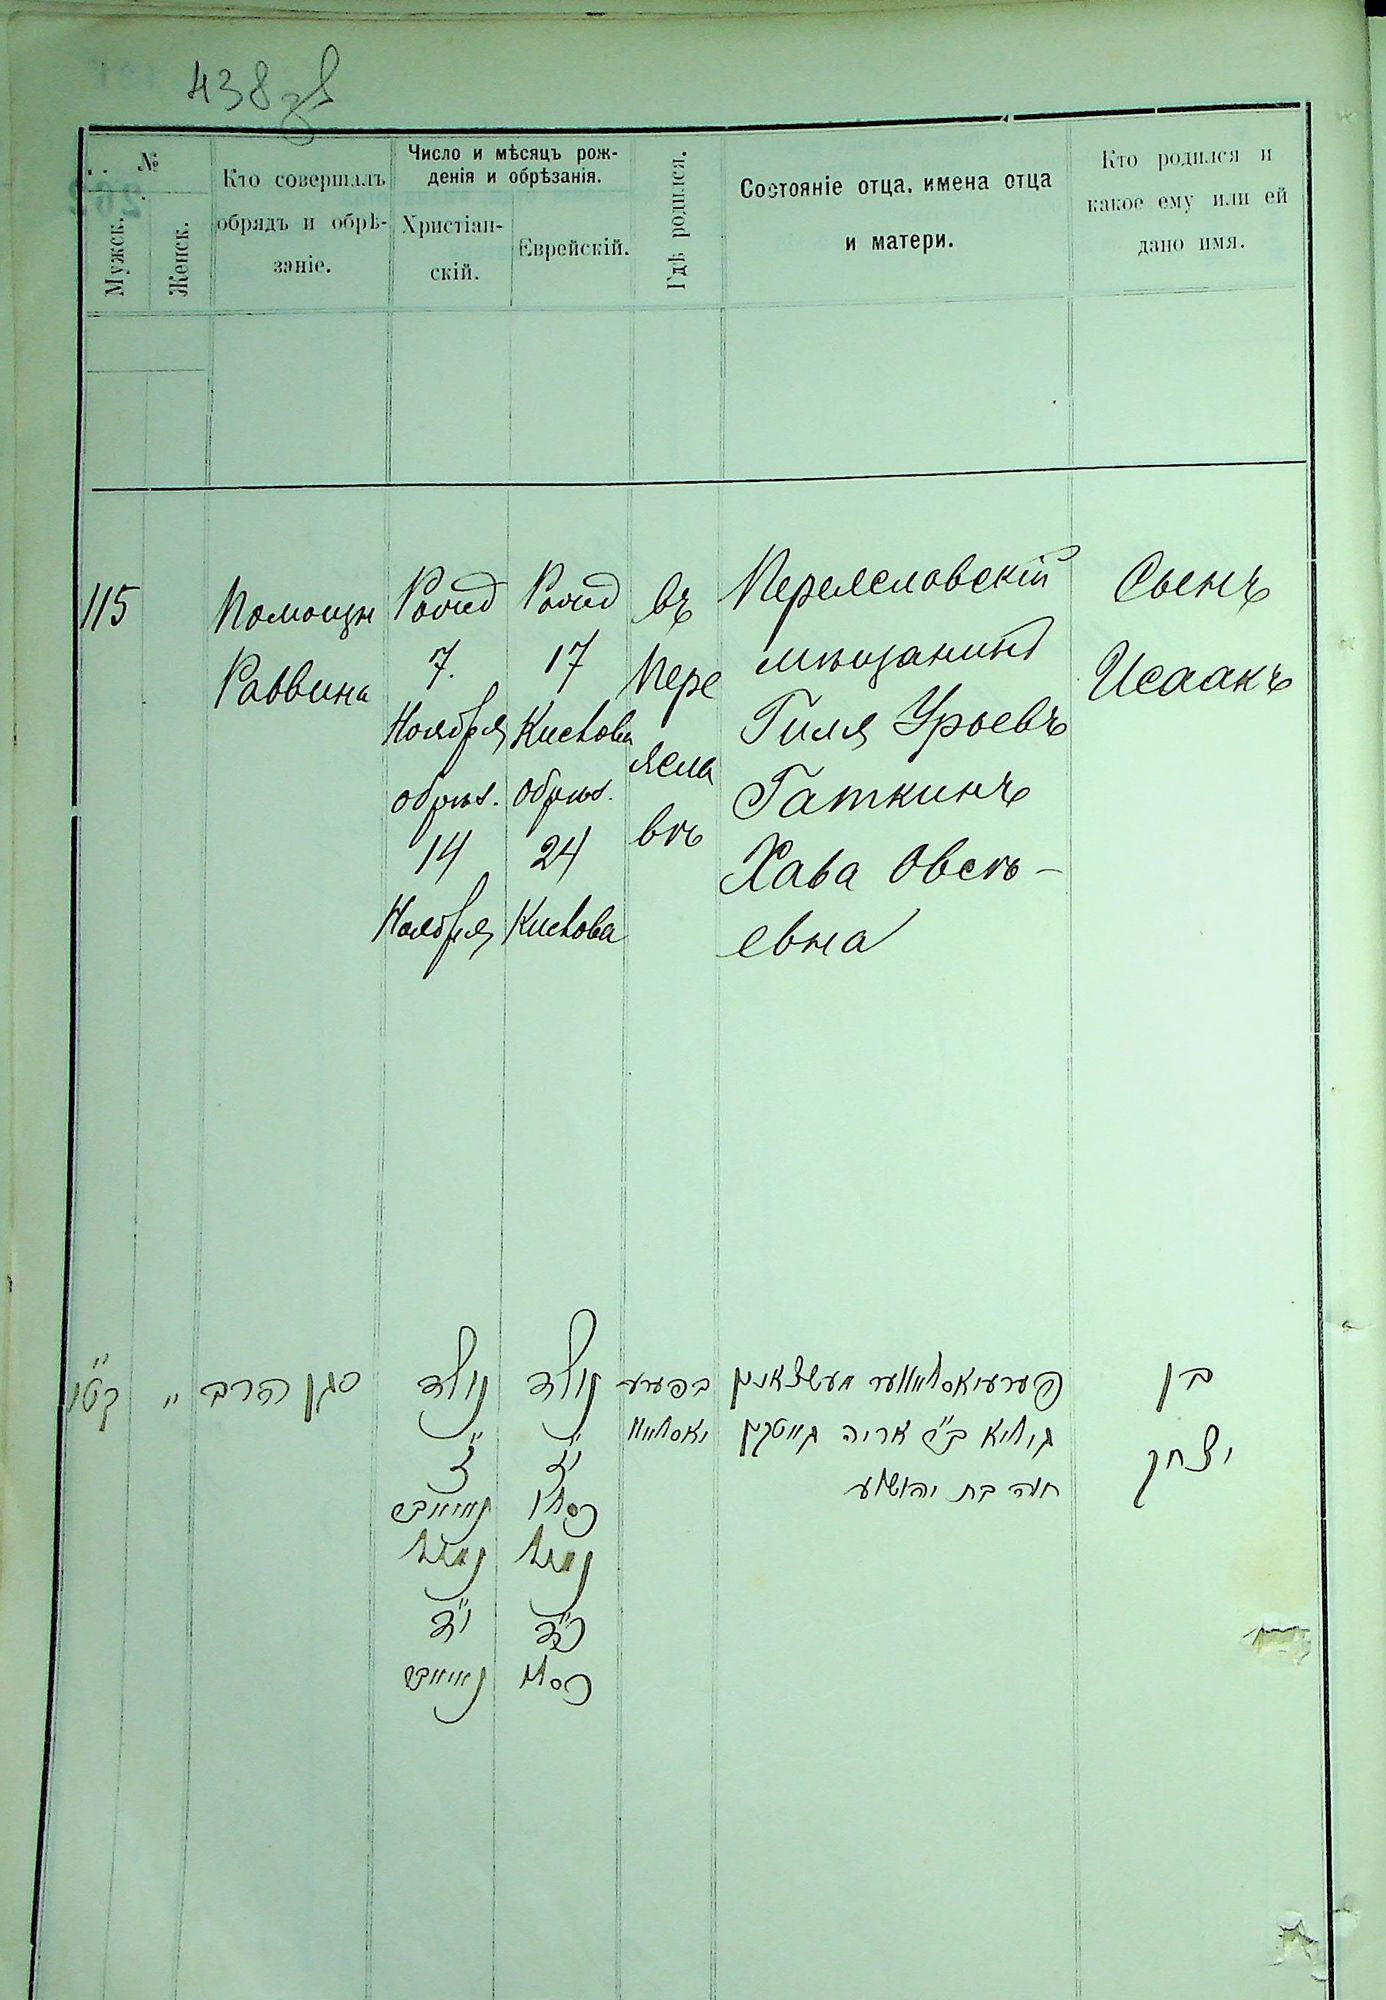 438 об
№
Мужск.
Женск.
Кто совершалъ
обрядъ и обрѣ-
заніе.
Число и мѣсяцъ рож-
денія и обрѣзанія.
Христіан-
скій.
Еврейскій.
Гдѣ родился.
Состояніе отца, имена отца
и матери.
Кто родился и
какое ему или ей
дано имя.
115
Помощн
Раввина
7.
Ноября
обрѣз.
14
Ноября
17
Кислова
обрѣз.
24
Кислова
въ
Пере
ясла
вѣ
Переяславскій
мѣщанинъ
Гиля Урьевъ
Гаткинъ
Хава Овсѣ-
евна
Сынъ
Исаакъ
קט״ו
״
סגן הרב
נולד
ז״
נאיאבר
נימול
י״ד
נאיאבר
נולד
י״ז
כסלו
נימול
כ״ד
כסלו
בפערע
יאסלאוו
פערעיאסלאווער מעשצאנין
הילא ב״ר אריה
חוה בת יהושע
בן
יצחק